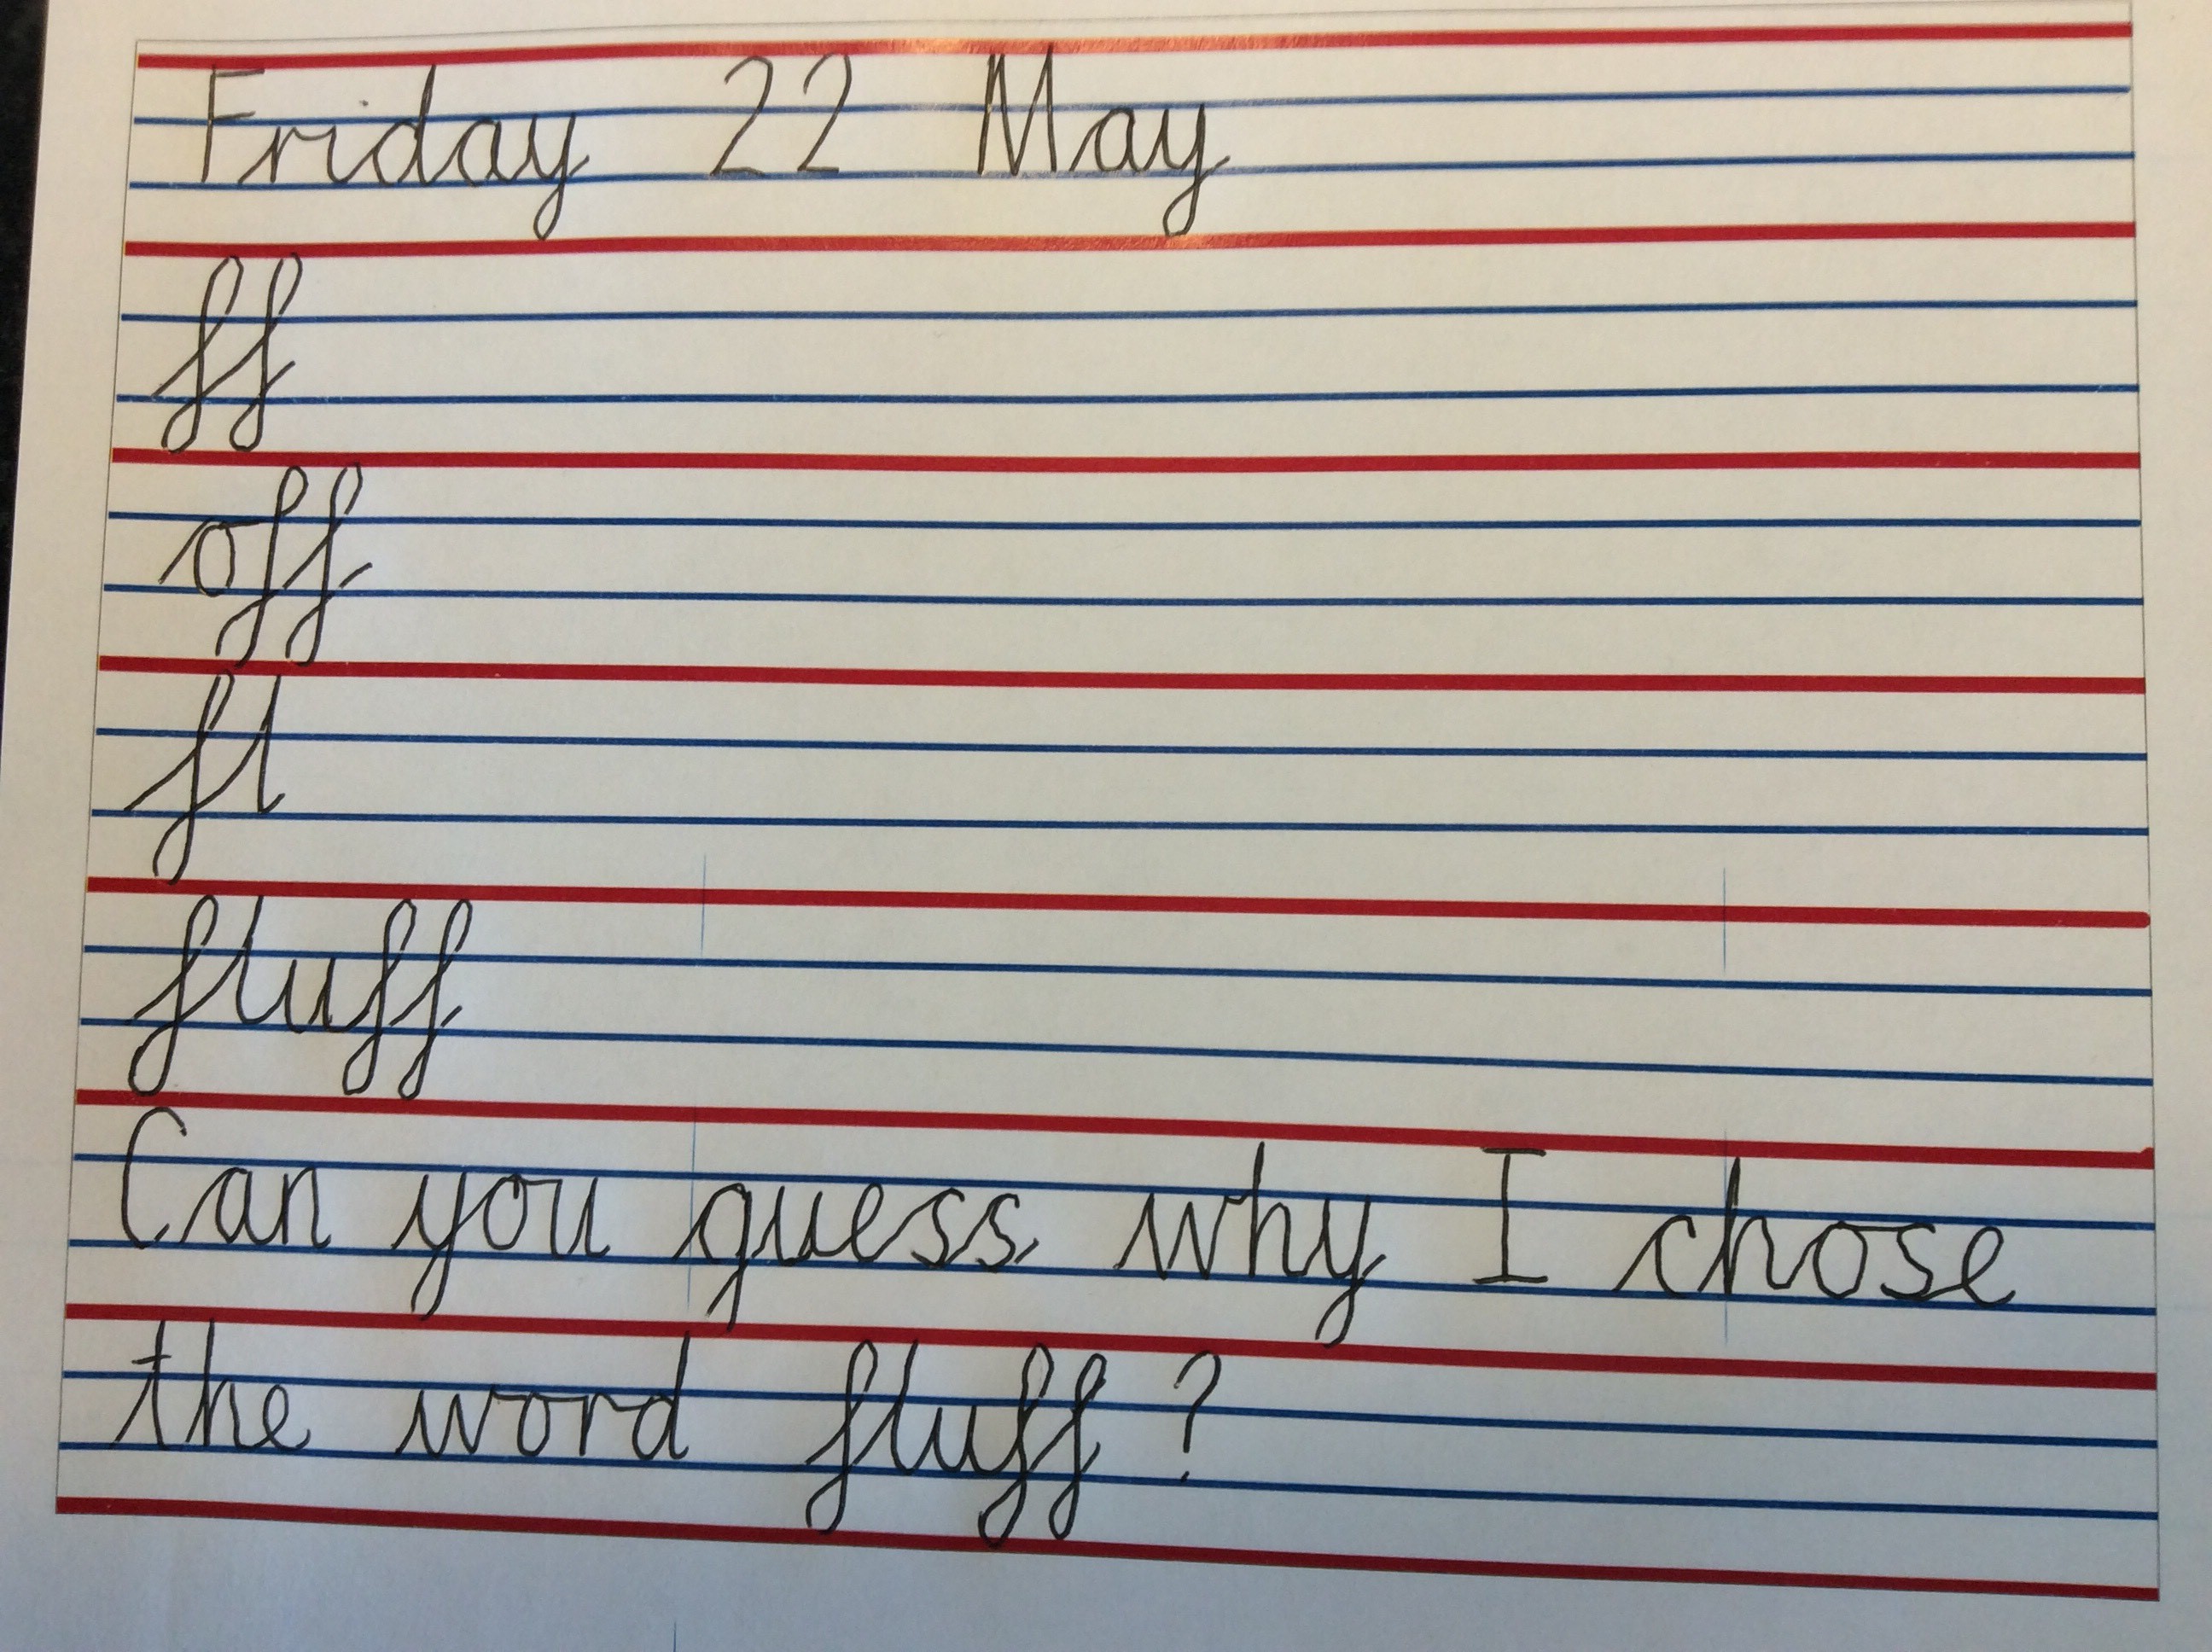 Friday 22 May
ff
off
fl
fluff
Can you guess why I chose
the word fluff?